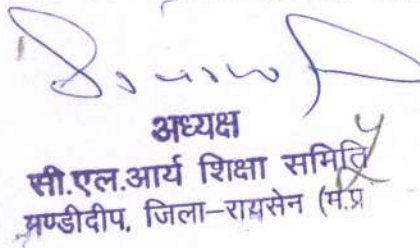 अध्यक्ष
सी.एल.आर्य शिक्षा समिति
मण्डीदीप, जिला-रायसेन (म.प्र